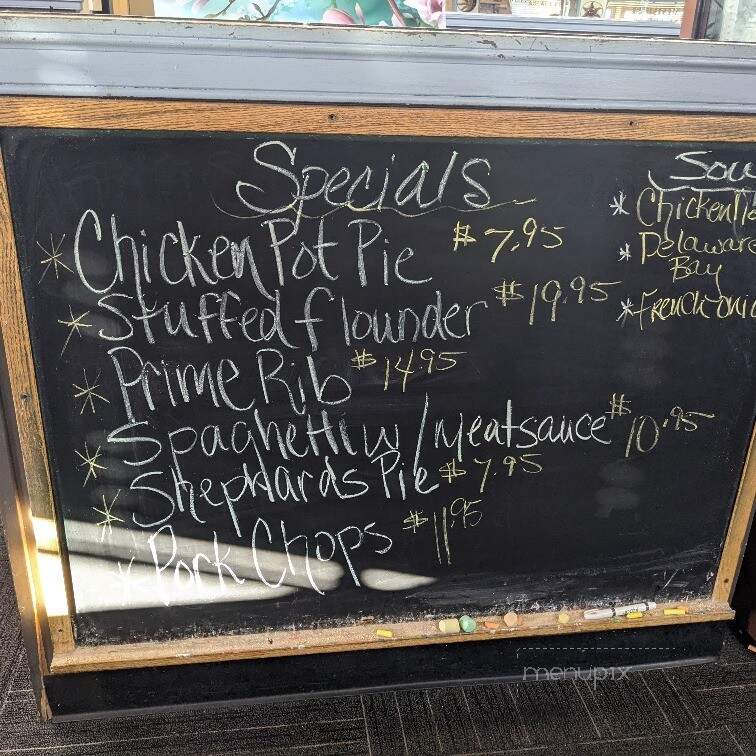 Specials
* Chicken Pot Pie $7.95
* Stuffed flounder $19.95
* Prime Rib $14.95
* Spaghetti w/ meatsauce $10.95
* Shephards Pie $7.95
* Pork Chops $11.95
* Delaware
Bay
menupix